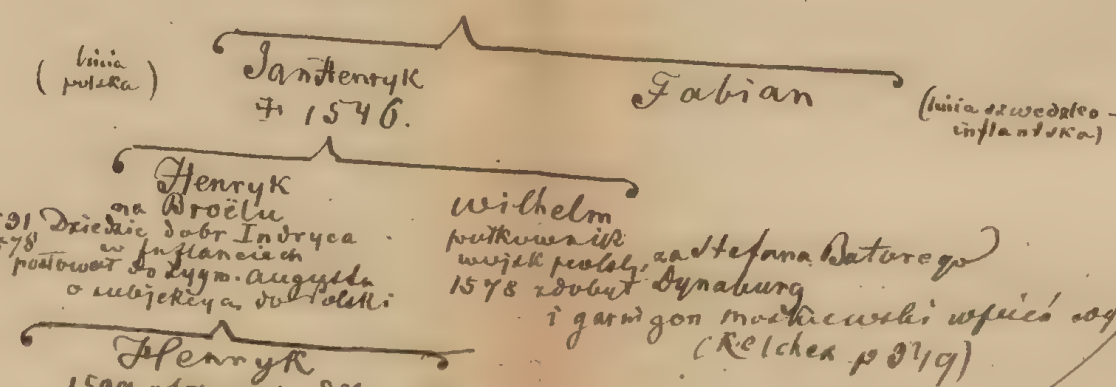 (linia
polska)
Jan Henryk
1546.
Fabian
(linia szwedzko-
inflantska)
Henryk
na Broëlu
Dziedzic dobr Indryca
w Inflanciech
posłował do Zygm. Augusta
o subjekcyą do Polski
Wilhelm
pułkownik
wojsk polsk. za Stefana Batorego
1578 zdobył Dynaburg
i garnizon moskiewski
(Kelcher p
Henryk